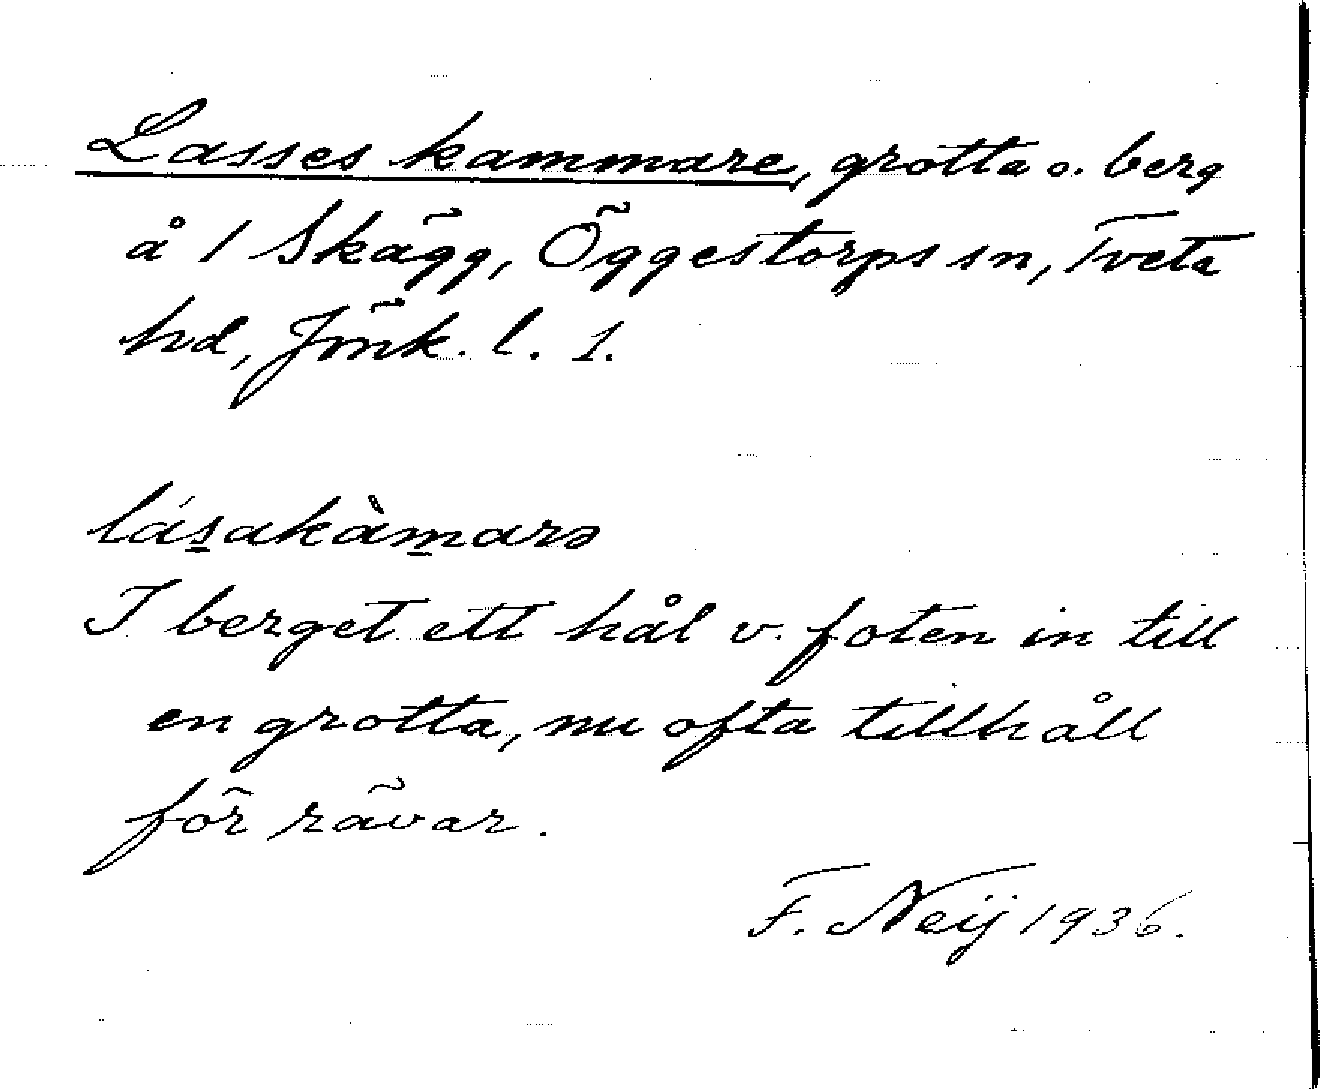 Lasses kammare, grotta o. berg
å 1 Skägg, Öggestorps sn, Tveta
hd, Jönk. l. 1.
lás̲akàm̲arə
I berget ett hål v. foten in till
en grotta, nu ofta tillhåll
för rävar.
F. Neij 1936.